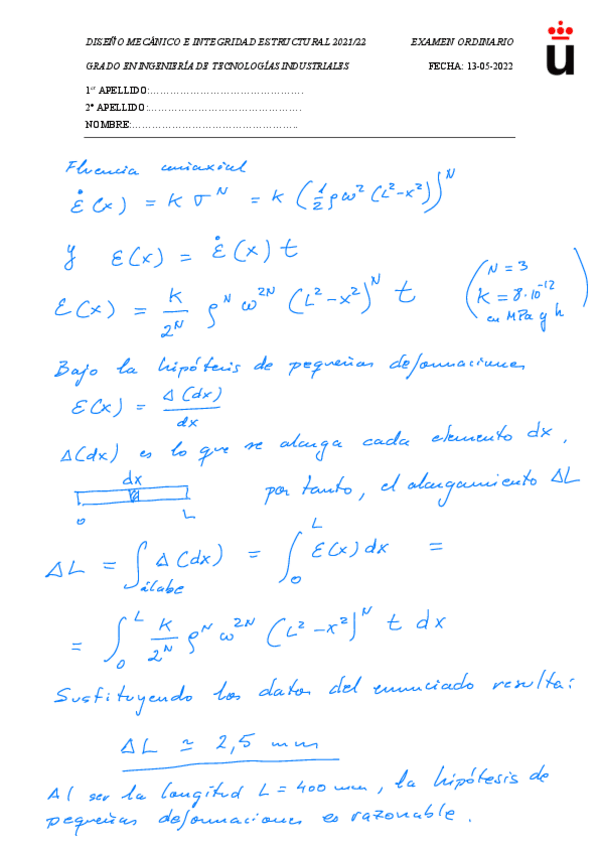 DISEÑO MECÁNICO E INTEGRIDAD ESTRUCTURAL 2021/22 EXAMEN ORDINARIO
GRADO EN INGENIERÍA DE TECNOLOGÍAS INDUSTRIALES FECHA: 13-05-2022
1er APELLIDO:..............................................
2º APELLIDO:..............................................
NOMBRE:..................................................
u
Fluencia uniaxial
ε̇(x) = K σ^N = K (1/2 ρω² (L²-x²))^N
y ε(x) = ε̇(x) t
ε(x) = K/2^N ρ^N ω^2N (L²-x²)^N t (N = 3
K = 8·10^-12
en MPa y h)
Bajo la hipótesis de pequeñas deformaciones
ε(x) = Δ(dx)/dx
Δ(dx) es lo que se alarga cada elemento dx,
dx
por tanto, el alargamiento ΔL
0 L
ΔL = ∫álabe Δ(dx) = ∫₀^L ε(x) dx =
= ∫₀^L K/2^N ρ^N ω^2N (L²-x²)^N t dx
Sustituyendo los datos del enunciado resulta:
ΔL ≃ 2,5 mm
Al ser la longitud L = 400 mm, la hipótesis de
pequeñas deformaciones es razonable.